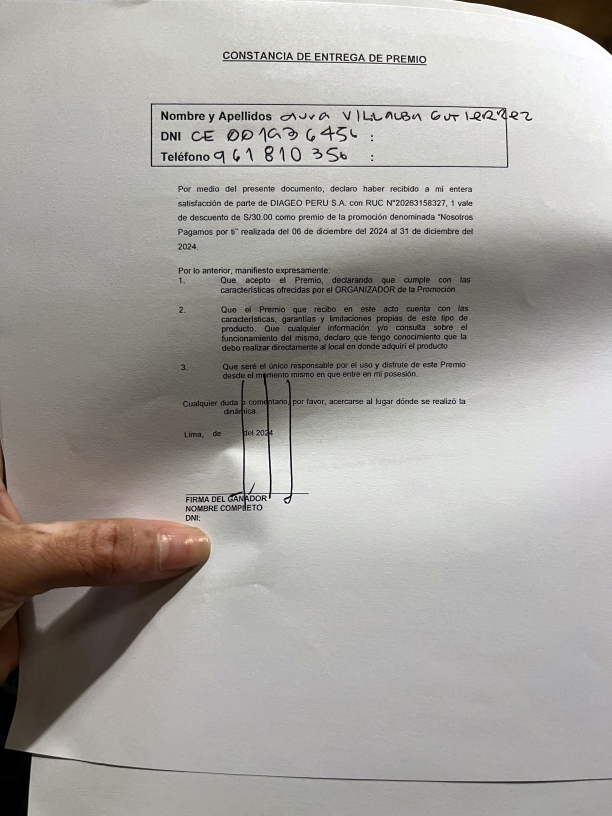 CONSTANCIA DE ENTREGA DE PREMIO
Nombre y Apellidos VILLALBA GUTIERREZ
DNI CE 001936456 :
Teléfono 961 810 356 :
Por medio del presente documento, declaro haber recibido a mi entera
satisfacción de parte de DIAGEO PERU S.A. con RUC N°20263158327, 1 vale
de descuento de S/30.00 como premio de la promoción denominada "Nosotros
Pagamos por ti" realizada del 06 de diciembre del 2024 al 31 de diciembre del
2024.
Por lo anterior, manifiesto expresamente:
1. Que acepto el Premio, declarando que cumple con las
características ofrecidas por el ORGANIZADOR de la Promoción
2. Que el Premio que recibo en este acto cuenta con las
características, garantías y limitaciones propias de este tipo de
producto. Que cualquier información y/o consulta sobre el
funcionamiento del mismo, declaro que tengo conocimiento que la
debo realizar directamente al local en donde adquirí el producto
3. Que seré el único responsable por el uso y disfrute de este Premio
desde el momento mismo en que entre en mi posesión.
Cualquier duda o comentario, por favor, acercarse al lugar dónde se realizó la
dinámica.
Lima, de del 2024
FIRMA DEL GANADOR
NOMBRE COMPLETO
DNI: